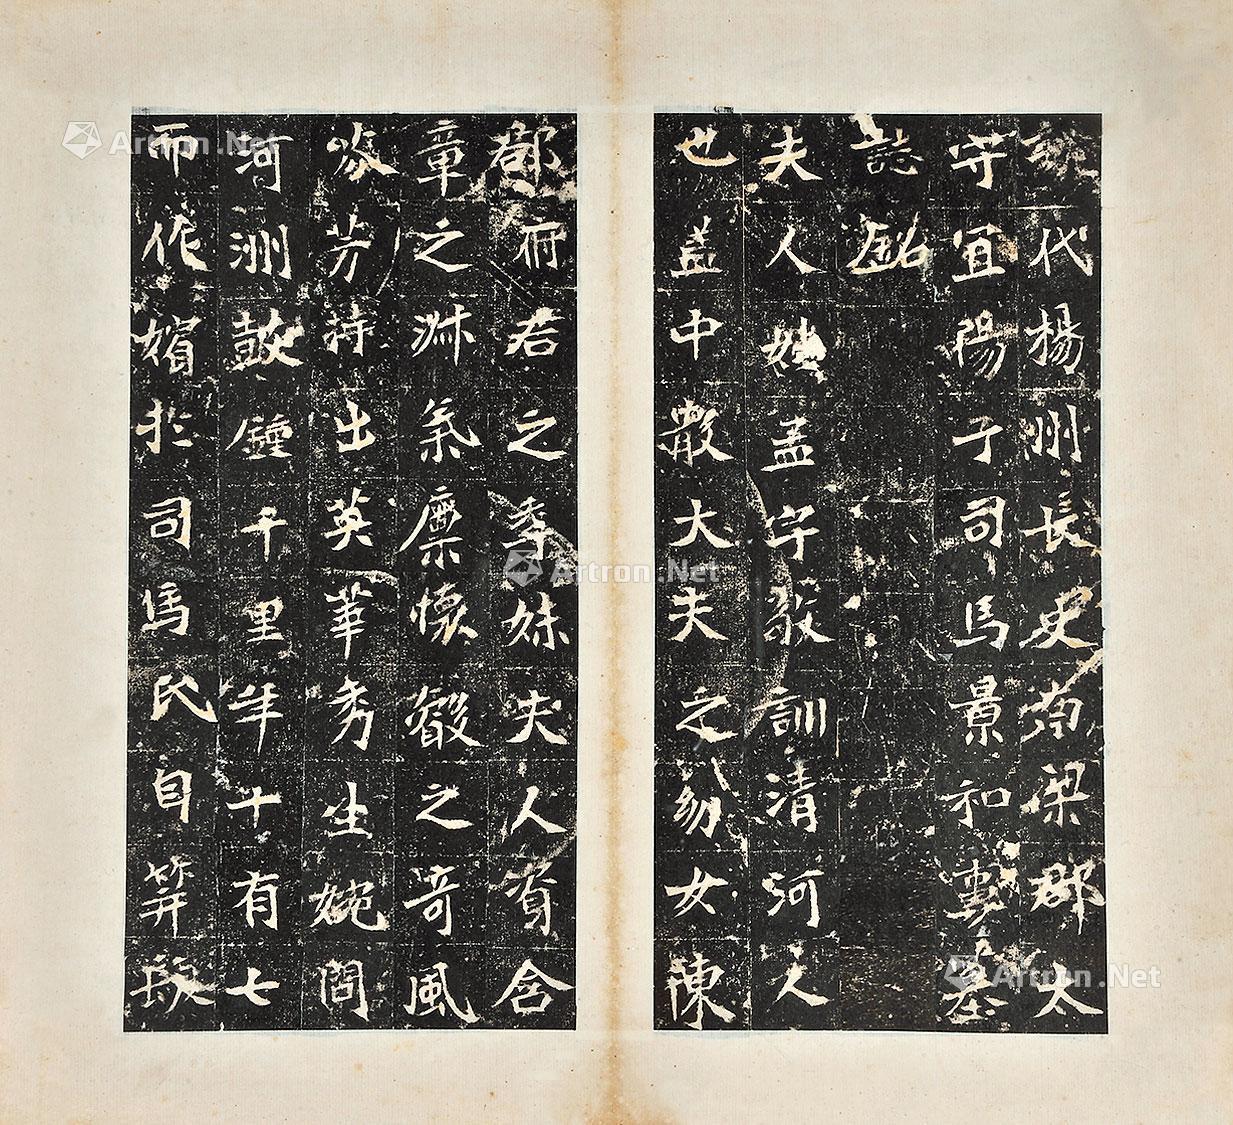 魏代揚州長史南梁郡太
守宜陽子司馬景和妻墓
誌銘
夫人姓孟字敬訓清河人
也蓋中散大夫之幼女陳
郡府君之季妹夫人資含
章之淑氣稟懷叡之奇風
芬芳特出英華秀生婉問
河洲鼓鍾千里年十有七
而作嬪於司馬氏自笄
Artron.Net
Artron.Net
Artron.Net